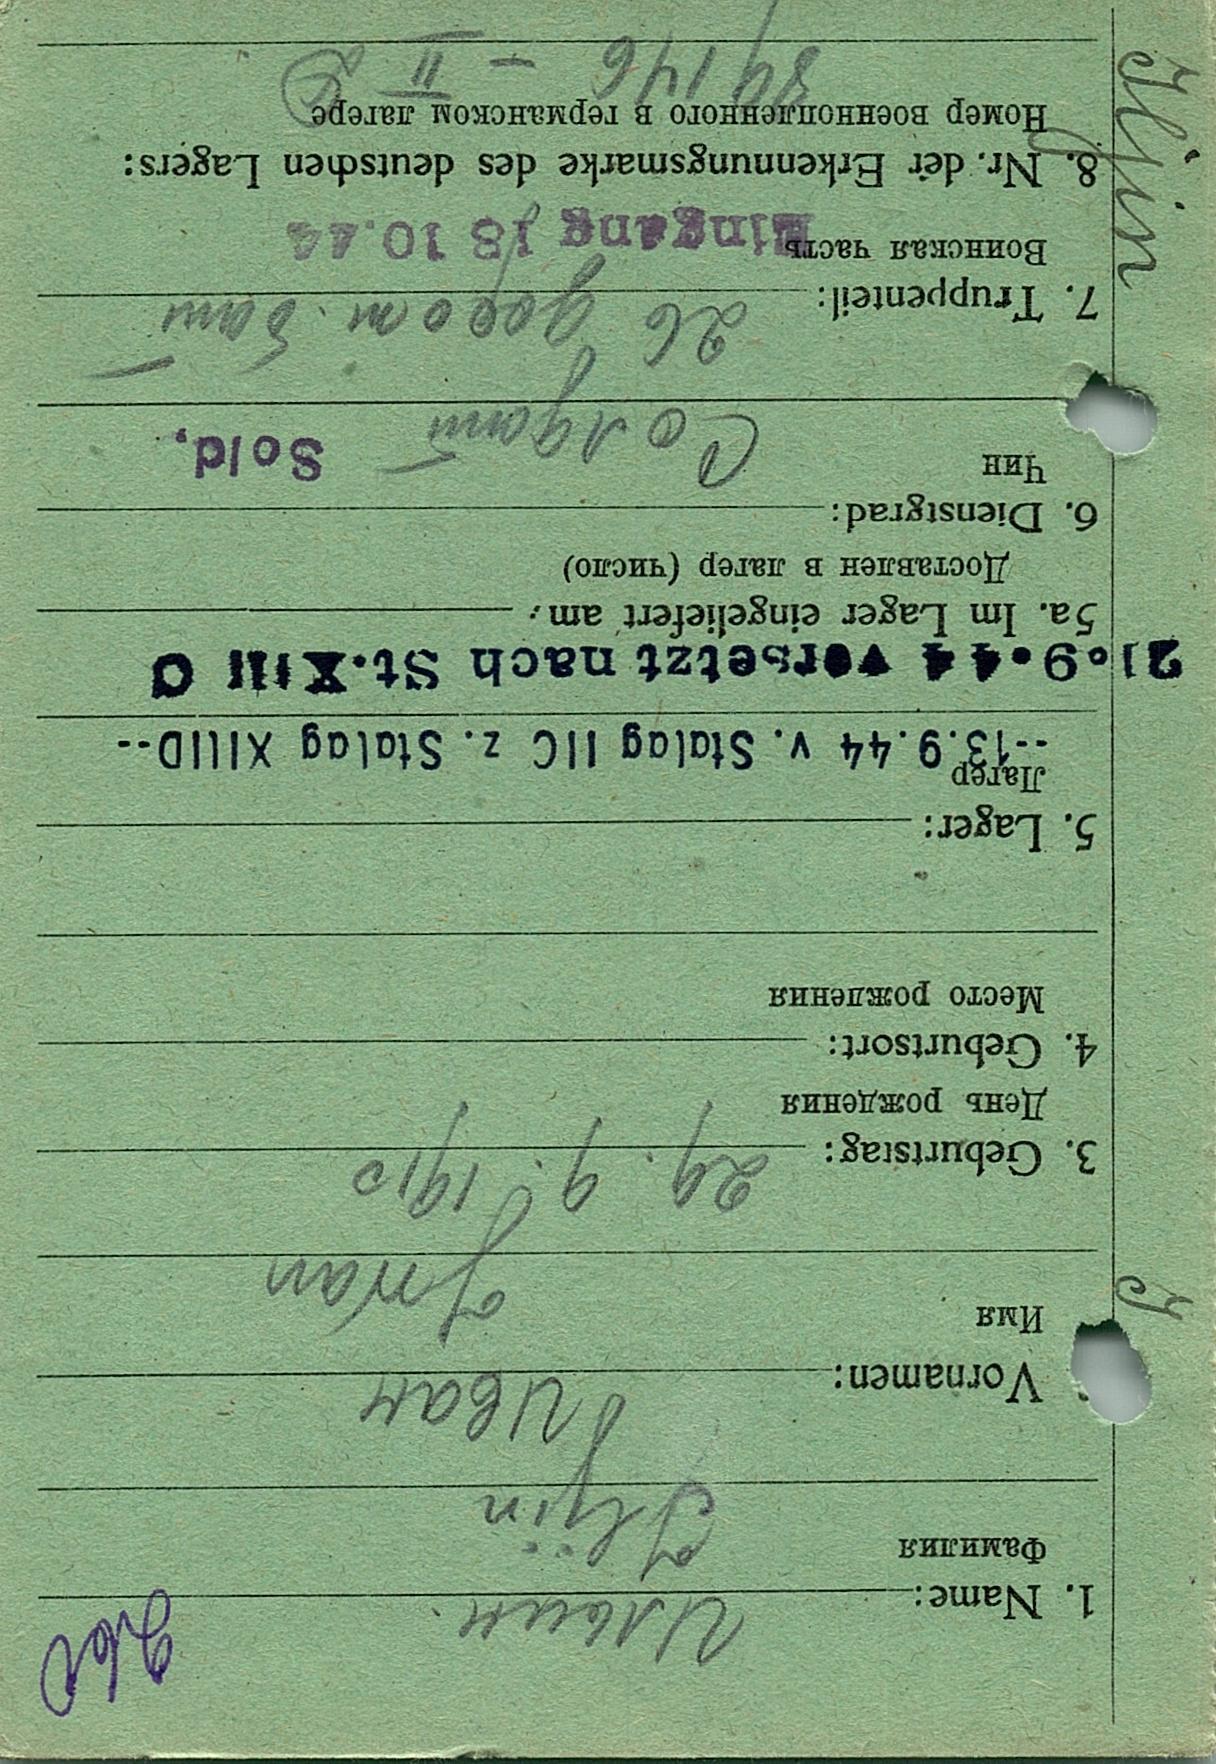 1. Name: Ильин.
Фамилия
Iljin
Vornamen: Иван
Имя
Iwan
3. Geburtstag: 29. 9. 1910
День рождения
4. Geburtsort:
Место рождения
5. Lager:
Лагер
--13.9.44 v. Stalag IIC z. Stalag XIIID--
21.9.44 versetzt nach St.XIII C
5a. Im Lager eingeliefert am:
Доставлен в лагер (число)
6. Dienstgrad:
Чин
Солдат Sold.
7. Truppenteil: 26
Воинская часть
Eingang 18 10.44
8. Nr. der Erkennungsmarke des deutschen Lagers:
Номер военнопленного в германском лагере
89146 - II D
Iljin
J